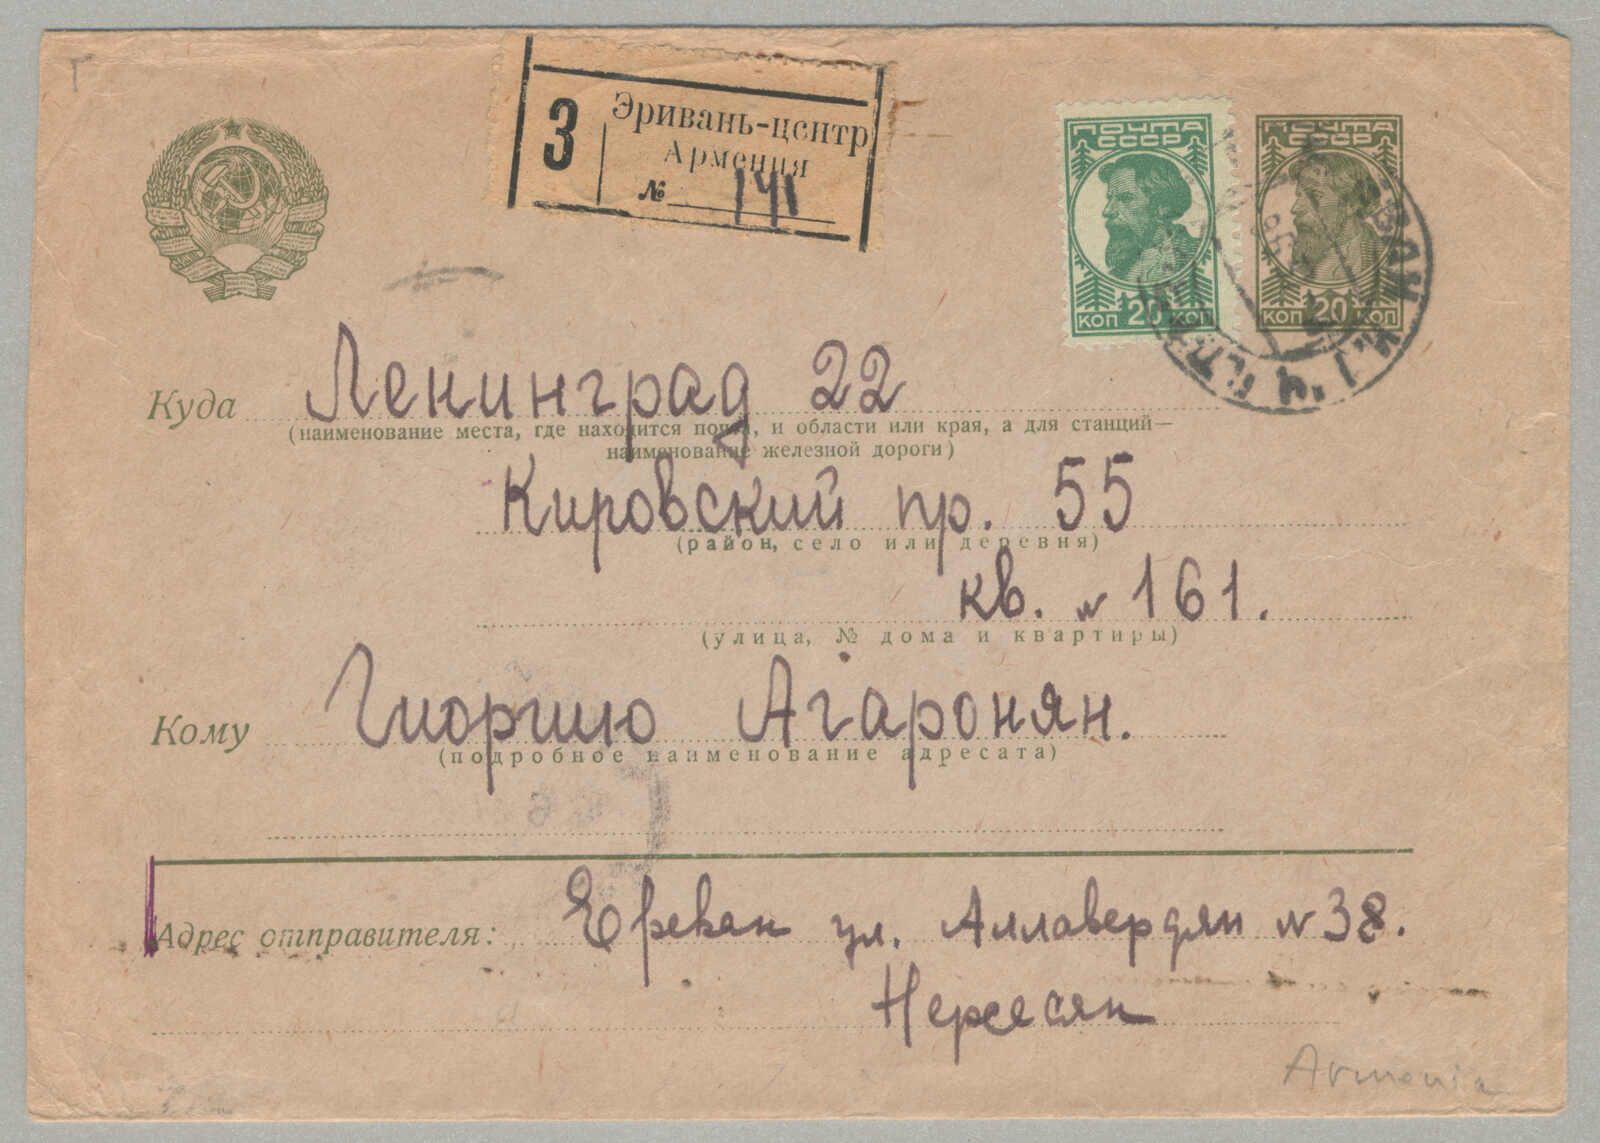 З
Эривань-центр
Армения
№ 141
ПОЧТА
СССР
КОП 20 КОП
ПОЧТА
СССР
КОП 20 КОП
Куда Ленинград 22
(наименование места, где находится почта, и области или края, а для станций—
наименование железной дороги)
Кировский пр. 55
(район, село или деревня)
кв. № 161.
(улица, № дома и квартиры)
Кому Гиоргию Агаронян.
(подробное наименование адресата)
Адрес отправителя: Ереван ул. Аллавердян № 38.
Нерсесян
Armenia